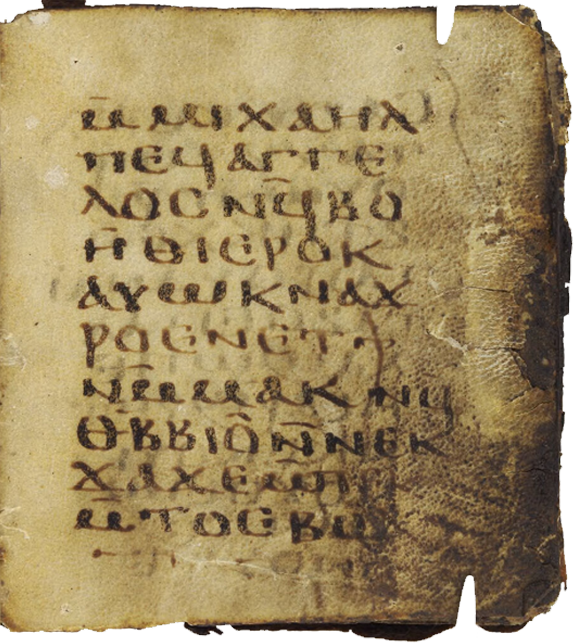 ⲙ̄ⲙⲓⲭⲁⲏⲗ
ⲡⲉϥⲁⲅⲅⲉ
ⲗⲟⲥⲛϥ̄ⲃⲟ
ⲏ̄ⲑⲓⲉⲣⲟⲕ
ⲁⲩⲱⲕⲛⲁϫ
ⲣⲟⲉⲛⲉⲧϯ
ⲛⲙ̄ⲙⲁⲕⲛϥ
ⲑⲃ̄ⲃⲓⲟ̂ⲛ̄ⲛⲉⲕ
ϫⲁϫⲉⲙ̄ⲡⲉ
ⲙ̄ⲧⲟⲉⲃⲟⲗ